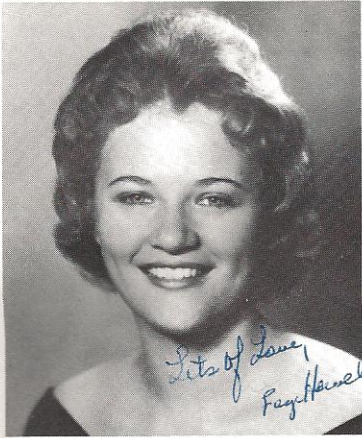 Lots of Love,
Faye Howell